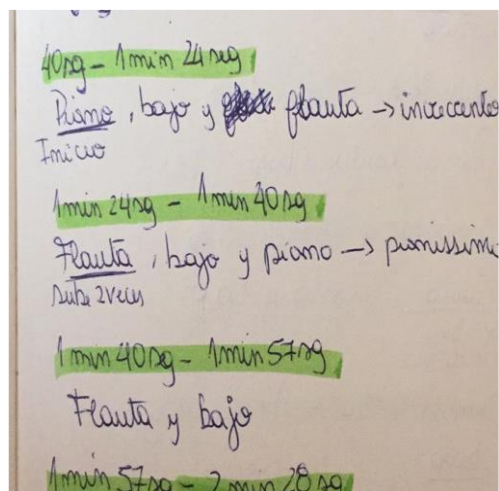 40sg - 1min 24seg
Piano, bajo y flauta → in crecento
Inicio
1min 24sg - 1min 40sg
Flauta, bajo y piano → pianissimo
sube 2 veces
1 min 40sg - 1min 57sg
Flauta y bajo
1min 57sg - 2 min 28 sg